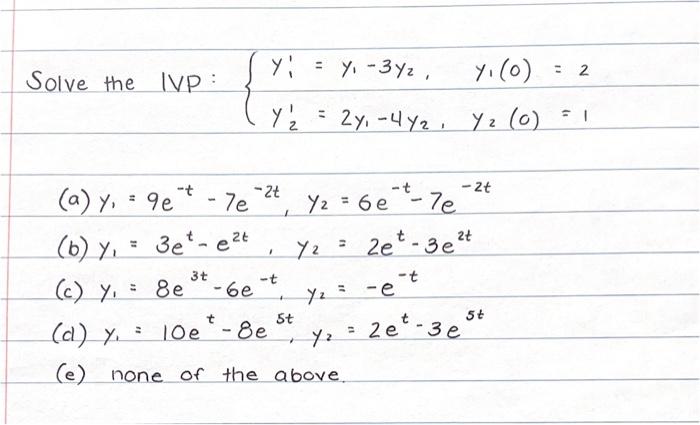 Solve the IVP: { y₁' = y₁ - 3y₂, y₁(0) = 2
y₂' = 2y₁ - 4y₂, y₂(0) = 1
(a) y₁ = 9e^{-t} - 7e^{-2t}, y₂ = 6e^{-t} - 7e^{-2t}
(b) y₁ = 3e^{t} - e^{2t}, y₂ = 2e^{t} - 3e^{2t}
(c) y₁ = 8e^{3t} - 6e^{-t}, y₂ = -e^{-t}
(d) y₁ = 10e^{t} - 8e^{5t}, y₂ = 2e^{t} - 3e^{5t}
(e) none of the above.